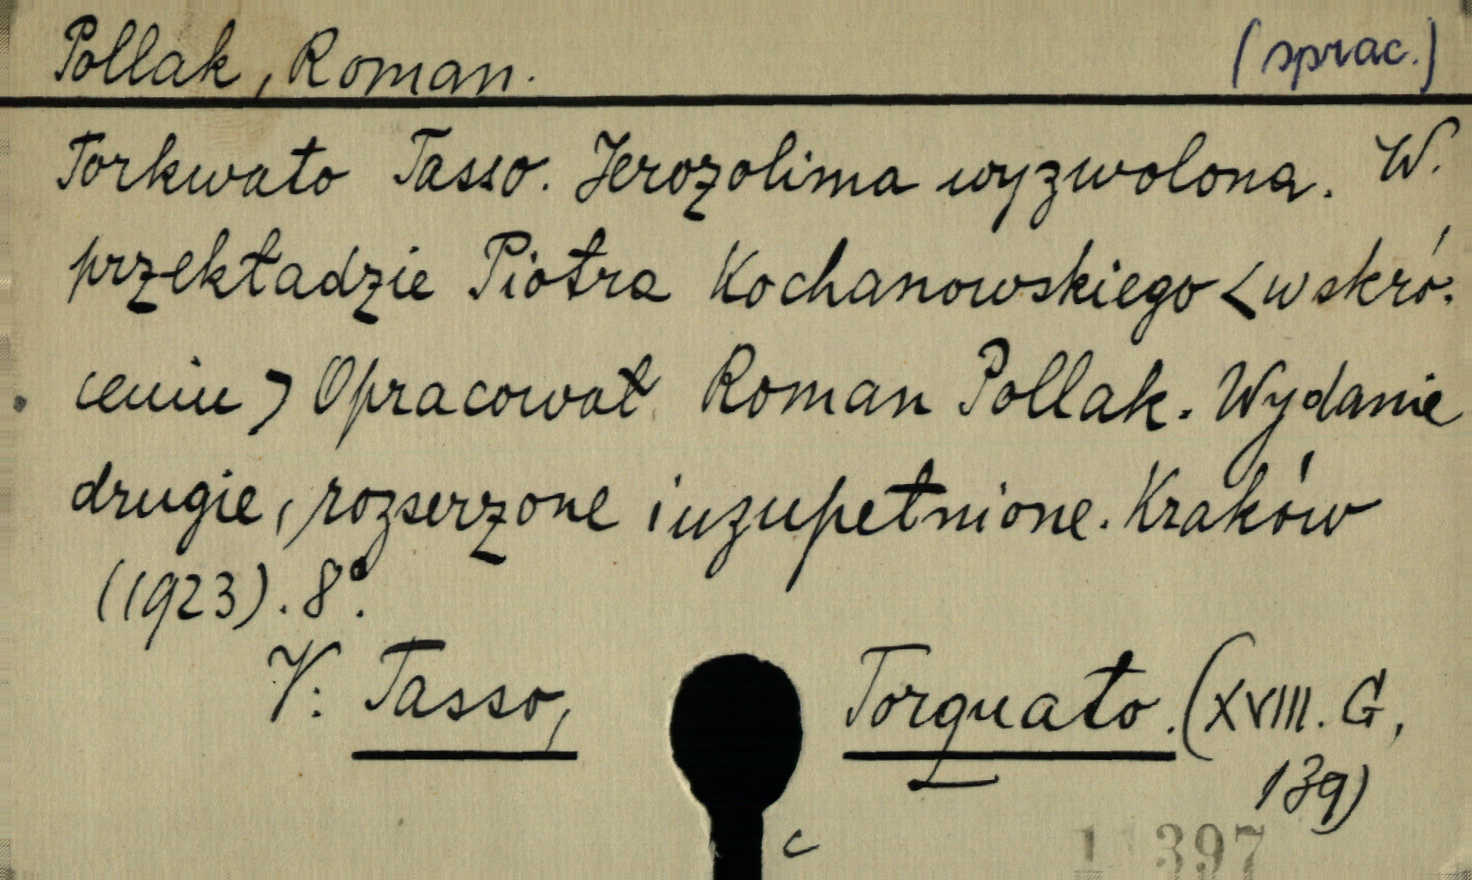 Pollak, Roman. (sprac.)
Torkwato Tasso. Jerozolima wyzwolona. W.
przekładzie Piotra Kochanowskiego <w skró-
ceniu> Opracował Roman Pollak. Wydanie
drugie, rozserzone i uzupełnione. Kraków
(1923). 8°.
V: Tasso, Torquato. (XVIII. G,
139)
c
1 397